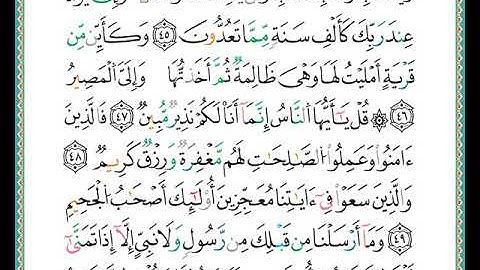 عِندَ رَبِّكَ كَأَلْفِ سَنَةٍ مِّمَّا تَعُدُّونَ ٤٥ وَكَأَيِّن مِّن
قَرْيَةٍ أَمْلَيْتُ لَهَا وَهِىَ ظَالِمَةٌ ثُمَّ أَخَذتُّهَا وَإِلَىَّ ٱلْمَصِيرُ
٤٦ ۞ قُلْ يَٰٓأَيُّهَا ٱلنَّاسُ إِنَّمَآ أَنَا۠ لَكُمْ نَذِيرٌ مُّبِينٌ ٤٧ فَٱلَّذِينَ
ءَامَنُوا۟ وَعَمِلُوا۟ ٱلصَّٰلِحَٰتِ لَهُم مَّغْفِرَةٌ وَرِزْقٌ كَرِيمٌ ٤٨
وَٱلَّذِينَ سَعَوْا۟ فِىٓ ءَايَٰتِنَا مُعَٰجِزِينَ أُو۟لَٰٓئِكَ أَصْحَٰبُ ٱلْجَحِيمِ
٤٩ وَمَآ أَرْسَلْنَا مِن قَبْلِكَ مِن رَّسُولٍ وَلَا نَبِىٍّ إِلَّآ إِذَا تَمَنَّىٰٓ